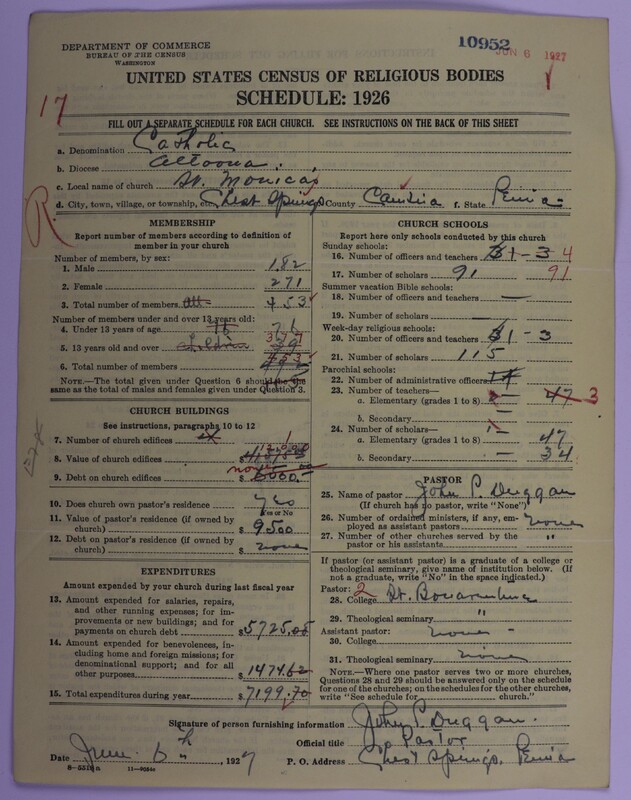 DEPARTMENT OF COMMERCE
BUREAU OF THE CENSUS
WASHINGTON
10952
JUN 6 1927
UNITED STATES CENSUS OF RELIGIOUS BODIES
SCHEDULE: 1926
17
FILL OUT A SEPARATE SCHEDULE FOR EACH CHURCH. SEE INSTRUCTIONS ON THE BACK OF THIS SHEET
a. Denomination Catholic
b. Diocese Altoona.
c. Local name of church St. Monicas
d. City, town, village, or township, etc. Chest Springs County Cambria f. State Penna.
R
MEMBERSHIP
Report number of members according to definition of member in your church
Number of members, by sex:
1. Male 182
2. Female 271
3. Total number of members 453
Number of members under and over 13 years old:
4. Under 13 years of age 76
5. 13 years old and over 377
6. Total number of members 453
NOTE.—The total given under Question 6 should be the
same as the total of males and females given under Question 3.
CHURCH BUILDINGS
See instructions, paragraphs 10 to 12
7. Number of church edifices 1
8. Value of church edifices $
9. Debt on church edifices $ none
10. Does church own pastor's residence yes
Yes or No
11. Value of pastor's residence (if owned by
church) $ 9500
12. Debt on pastor's residence (if owned by
church) $ none
EXPENDITURES
Amount expended by your church during last fiscal year
13. Amount expended for salaries, repairs,
and other running expenses; for im-
provements or new buildings; and for
payments on church debt $5725.08
14. Amount expended for benevolences, in-
cluding home and foreign missions; for
denominational support; and for all
other purposes $1474.62
15. Total expenditures during year $7199.70
CHURCH SCHOOLS
Report here only schools conducted by this church
Sunday schools:
16. Number of officers and teachers 1 - 3 4
17. Number of scholars 91 91
Summer vacation Bible schools:
18. Number of officers and teachers —
19. Number of scholars —
Week-day religious schools:
20. Number of officers and teachers 1 - 3
21. Number of scholars 115
Parochial schools:
22. Number of administrative officers
23. Number of teachers—
a. Elementary (grades 1 to 8) 47 3
b. Secondary —
24. Number of scholars—
a. Elementary (grades 1 to 8) 47
b. Secondary 34
PASTOR
25. Name of pastor John P. Duggan
(If church has no pastor, write "None")
26. Number of ordained ministers, if any, em-
ployed as assistant pastors none
27. Number of other churches served by the
pastor or his assistants "
If pastor (or assistant pastor) is a graduate of a college or
theological seminary, give name of institution below. (If
not a graduate, write "No" in the space indicated.)
Pastor: 2
28. College St. Bonaventure
29. Theological seminary "
Assistant pastor:
30. College none
31. Theological seminary none
NOTE.—Where one pastor serves two or more churches,
Questions 28 and 29 should be answered only on the schedule
for one of the churches; on the schedules for the other churches,
write "See schedule for church."
Signature of person furnishing information John P. Duggan.
Official title Pastor
Date June 6th, 1927
P. O. Address Chest Springs. Penna
8-5516a 11-9064c